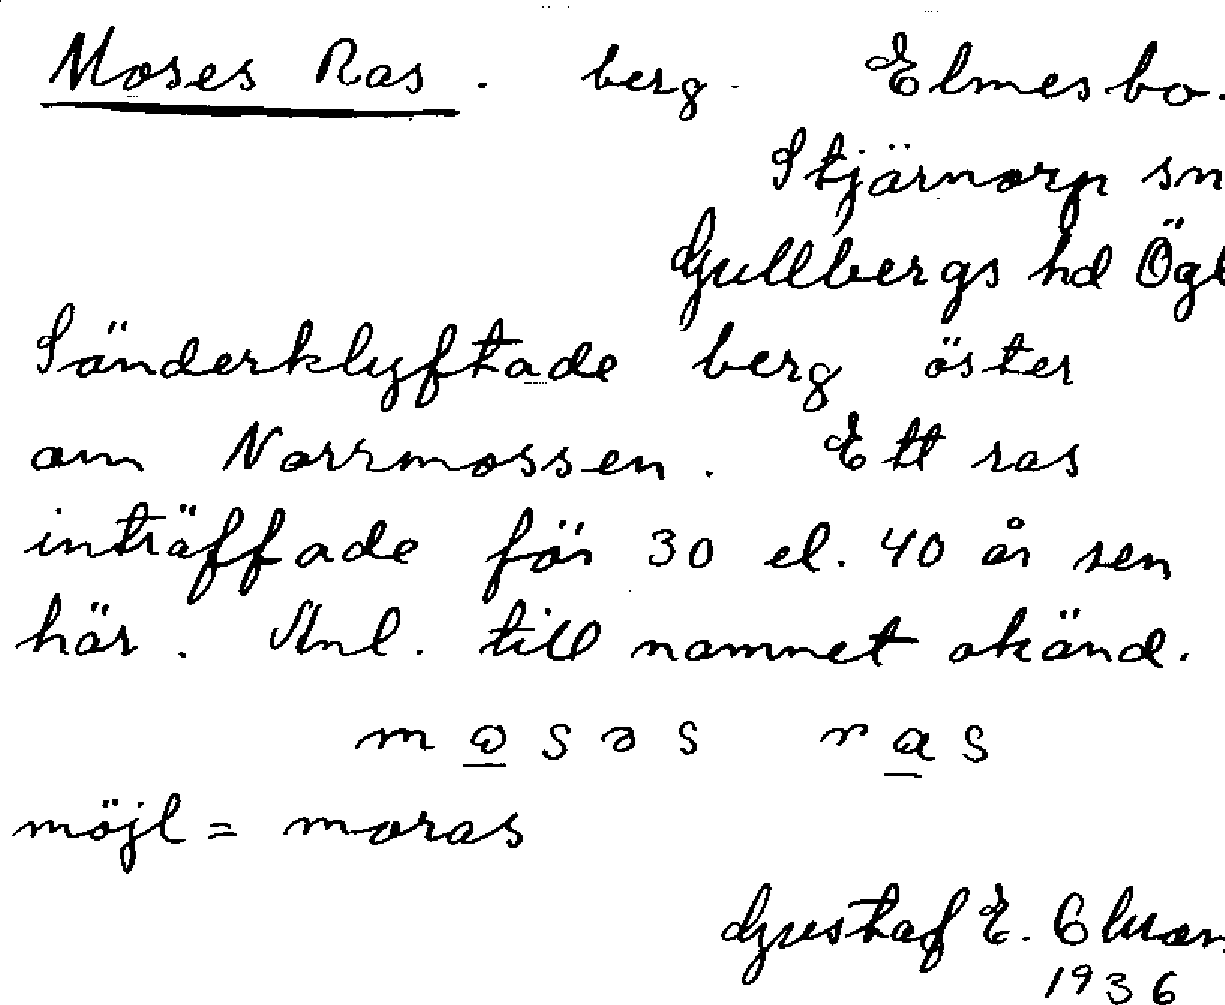 Moses Ras. berg. Elmesbo.
Stjärnorp sn
Gullbergs hd Ögl
Sönderklyftade berg öster
om Norrmossen. Ett ras
inträffade för 30 el. 40 år sen
här. Anl. till namnet okänd.
mo̲səs ra̲s
möjl = moras
Gustaf E.
1936